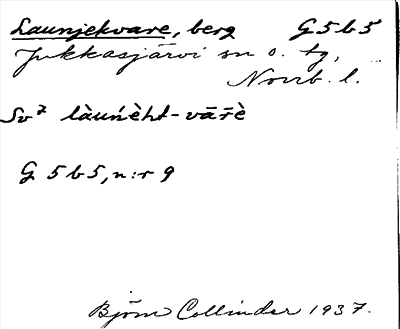 Launjekvare, berg G 5 b 5
Jukkasjärvi sn o. tg,
Norrb. l.
Sv² làuńèht-vā̀r̄è
G 5 b 5, n:r 9
Björn Collinder 1937.